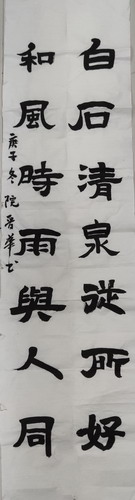 白石清泉從所好
和風時雨與人同
庚子冬院晉華书